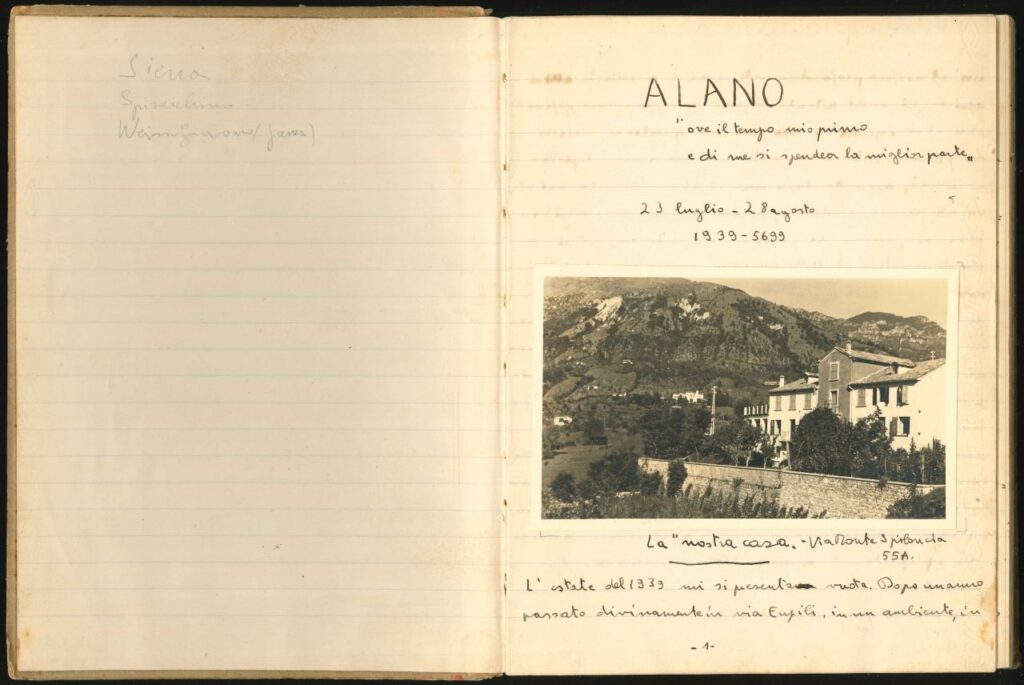 Siena
ALANO
"ove il tempo mio primo
e di me si spendea la miglior parte„
23 luglio - 28 agosto
1939-5699
La "nostra casa„ - Via Monte
55A.
L'estate del 1939 mi si presenta vuota. Dopo un anno
passato divinamente in via Eupili, in un ambiente, in
- 1 -